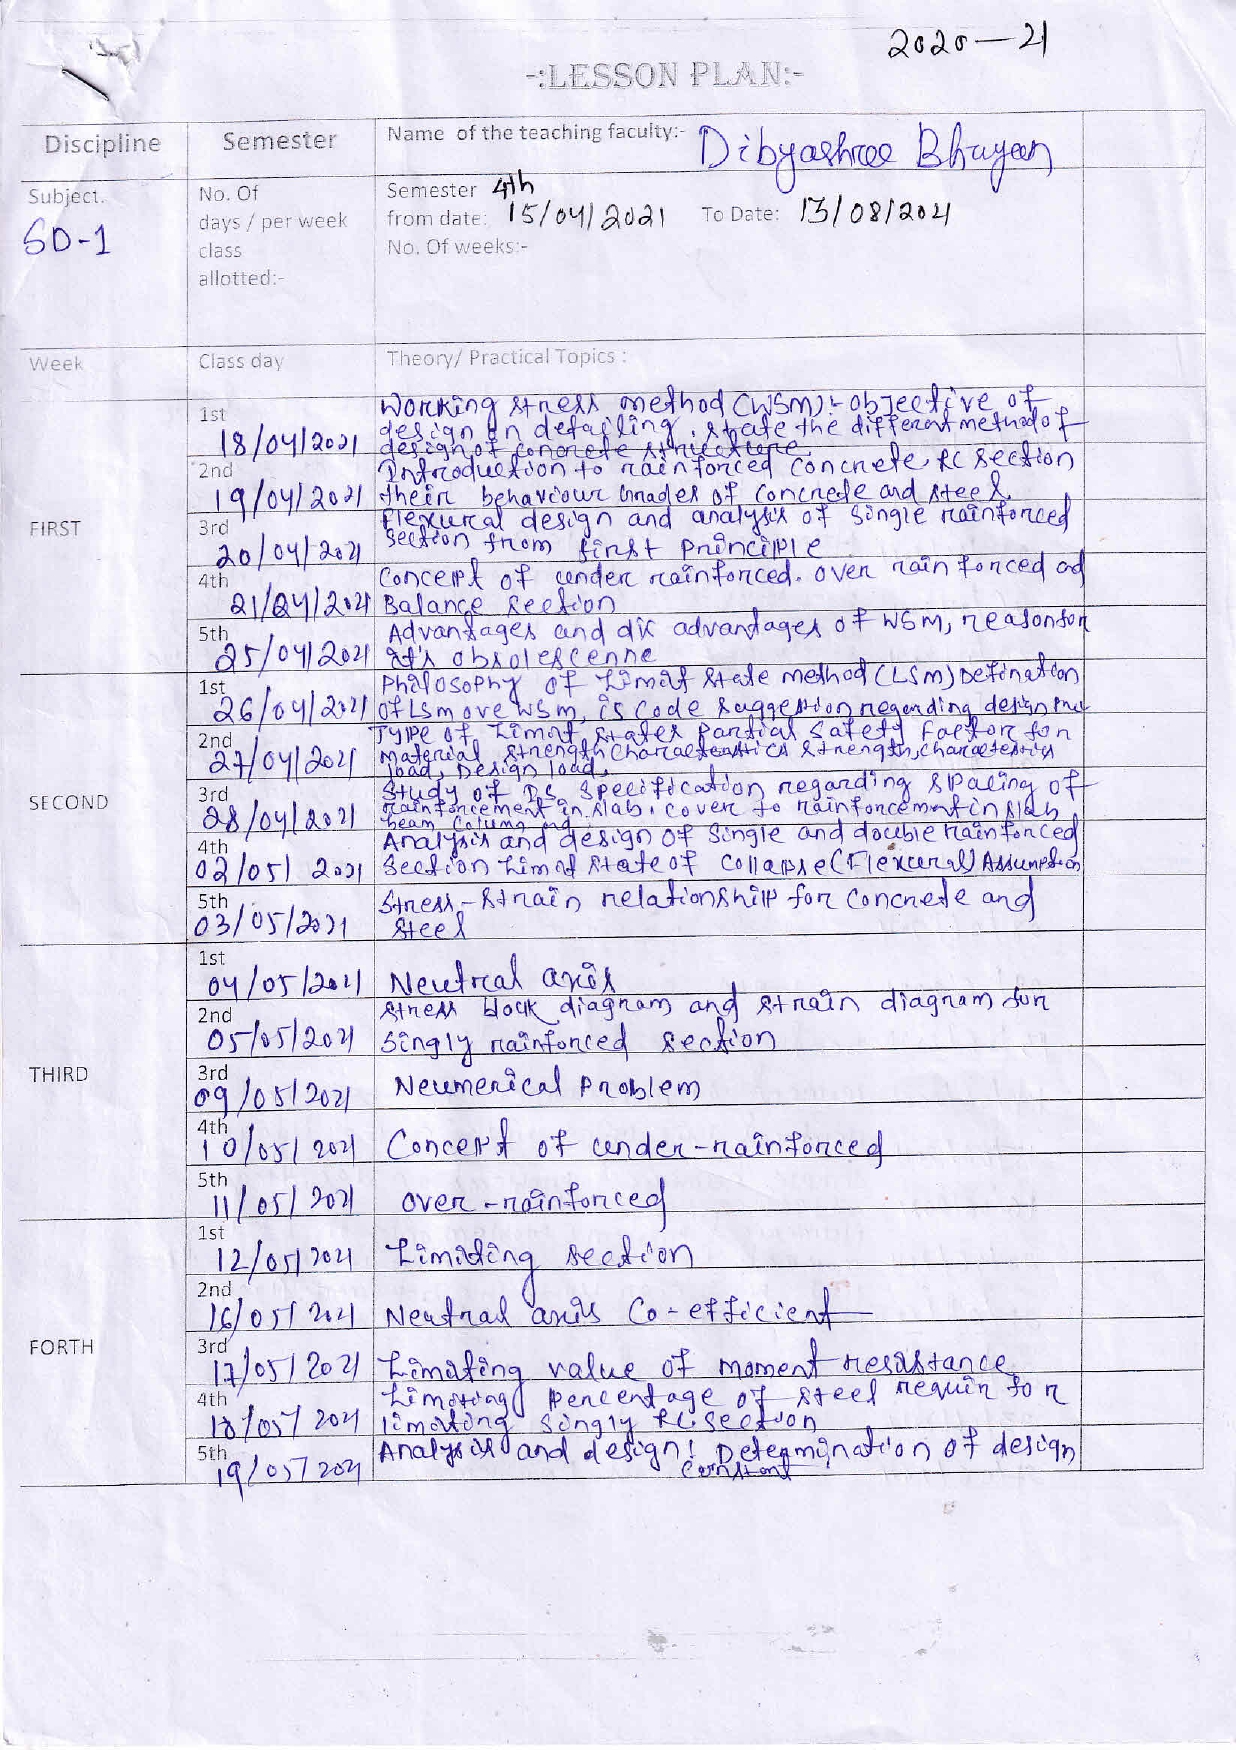 2020-21
-:LESSON PLAN:-
Discipline
Semester
Name of the teaching faculty:- Dibyashree Bhuyan
Subject.
SD-1
No. Of
days / per week
class
allotted:-
Semester 4th
from date: 15/04/2021 To Date: 13/08/2021
No. Of weeks:-
Week
Class day
Theory/ Practical Topics :
FIRST
1st
18/04/2021
Working stress method (WSM):- objective of
design on detailing. state the different method of
design of concrete structure
2nd
19/04/2021
Introduction to rainforced concrete, RC section
their behaviour Grades of concrete and steel.
3rd
20/04/2021
Flexural design and analysis of single rainforced
section from first principle
4th
21/04/2021
Concept of under rainforced. over rainforced ad
Balance section
5th
25/04/2021
Advantages and dis advantages of WSM, reason for
it's obsolescenne
SECOND
1st
26/04/2021
Philosophy of Limit state method (LSM) Defination
of LSM ove WSM, is code suggestion regarding design
2nd
27/04/2021
Type of Limit states Partial Safety Factor for
Material strength characteristics strength, characteristics
load, Design load,
3rd
28/04/2021
Study of I.S specification regarding spacing of
rainforcement in slab. cover to rainforcement in slab
beam column and
4th
02/05/ 2021
Analysis and design of Single and double rainforced
section Limit state of collapse (Flexural) Assumption
5th
03/05/2021
Stress-strain relationship for concrete and
steel
THIRD
1st
04/05/2021
Neutral axis
2nd
05/05/2021
stress block diagram and strain diagram for
singly rainforced section
3rd
09/05/2021
Neumerical Problem
4th
10/05/ 2021
Concept of under-rainforced
5th
11/05/ 2021
over-rainforced
FORTH
1st
12/05/ 2021
Limiting section
2nd
16/05/ 2021
Neutral axis Co-efficient
3rd
17/05/ 2021
Limiting value of moment resistance
4th
18/05/ 2021
Limiting percentage of steel requir for
limiting singly R.C section
5th
19/05/ 2021
Analysis and design: Determination of design
constant